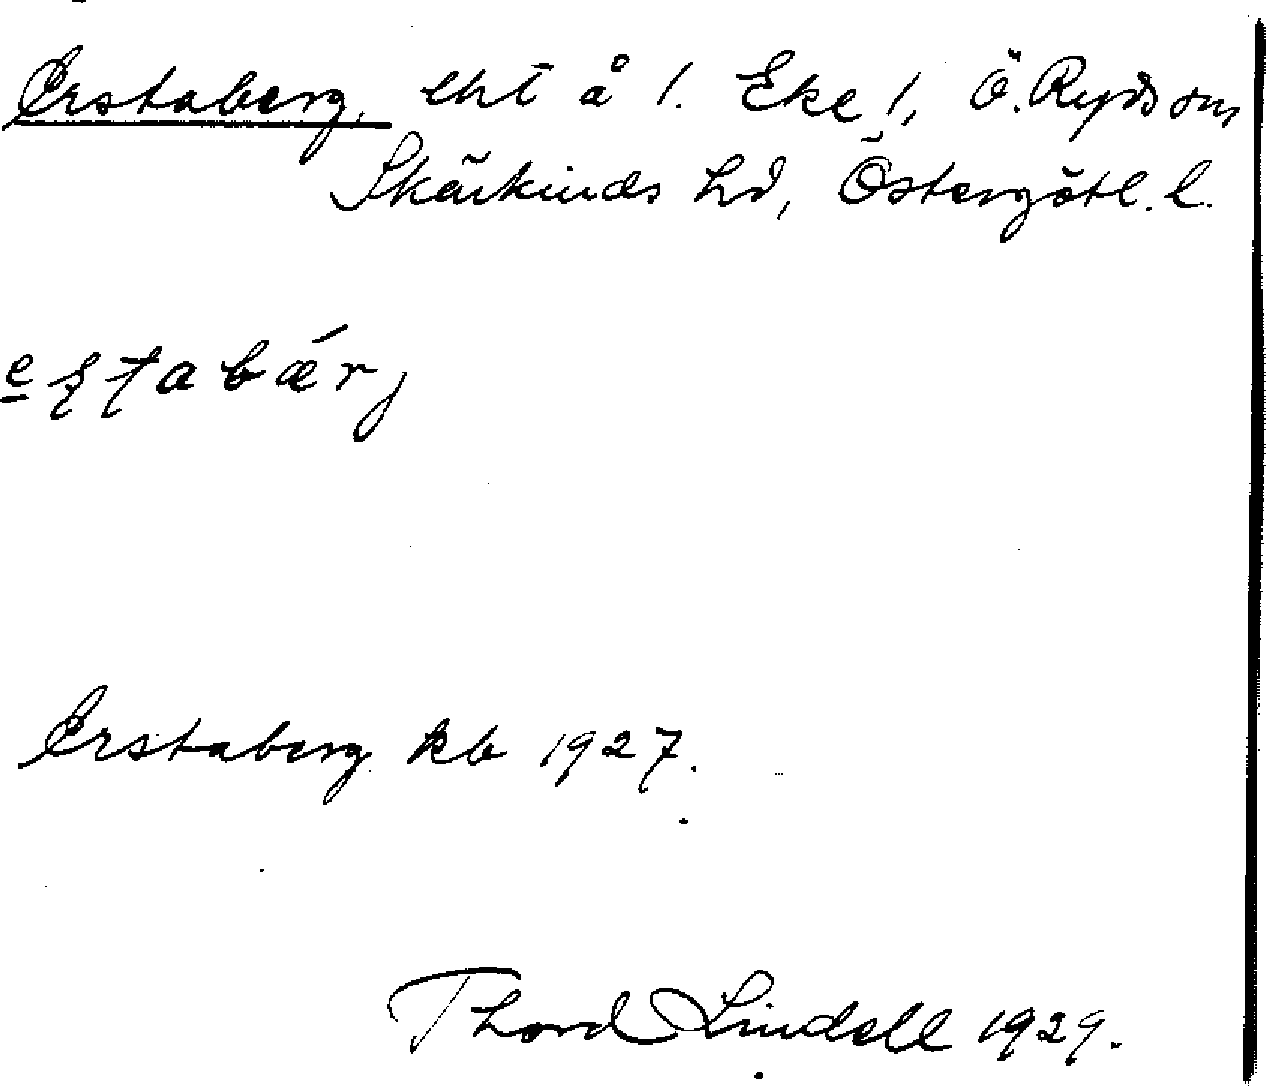 Erstaberg, lht å 1. Eke 1, Ö. Ryds sn,
Skärkinds hd, Östergötl. l.
Erstaberg kb 1927.
Thord Lindell 1929.